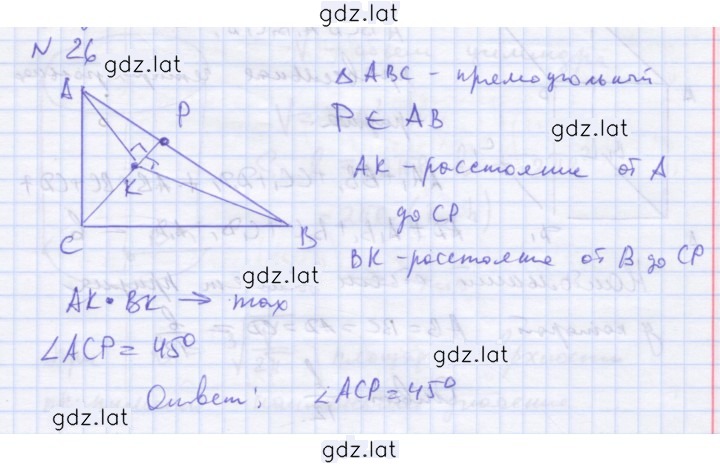 gdz.lat
N 26
gdz.lat
A
P
K
C
B
△ABC - прямоугольный
P ∈ AB
gdz.lat
AK - расстояние от A
до CP
BK - расстояние от B до CP
gdz.lat
AK · BK → max
∠ACP = 45°
gdz.lat
Ответ: ∠ACP = 45°
gdz.lat
gdz.lat